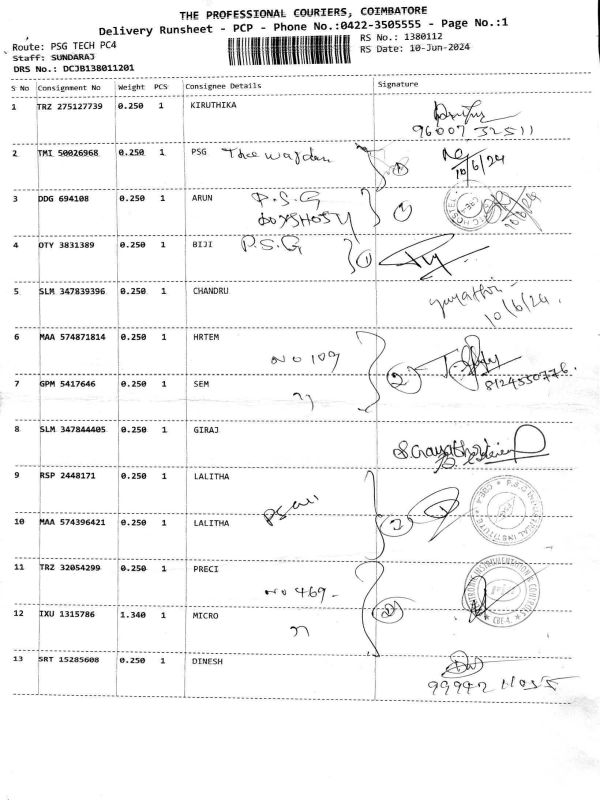 THE PROFESSIONAL COURIERS, COIMBATORE
Delivery Runsheet - PCP - Phone No.:0422-3505555 - Page No.:1
Route: PSG TECH PC4
RS No.: 1380112
Staff: SUNDARAJ
RS Date: 10-Jun-2024
DRS No.: DCJB138011201
S No Consignment No Weight PCS Consignee Details Signature
1 TRZ 275127739 0.250 1 KIRUTHIKA
96007 32511
2 TMI 50026968 0.250 1 PSG The warden
10/6/24
3 DDG 694108 0.250 1 ARUN P.S.G
10/6/24
4 OTY 3831389 0.250 1 BIJI P.S.G 1
5 SLM 347839396 0.250 1 CHANDRU
10/6/24.
6 MAA 574871814 0.250 1 HRTEM
NO 109 2
8124550776.
7 GPM 5417646 0.250 1 SEM
8 SLM 347844405 0.250 1 GIRAJ
9 RSP 2448171 0.250 1 LALITHA
10 MAA 574396421 0.250 1 LALITHA
11 TRZ 32054299 0.250 1 PRECI
NO 469-
12 IXU 1315786 1.340 1 MICRO
CBE-4.
13 SRT 15285608 0.250 1 DINESH
99942 11055